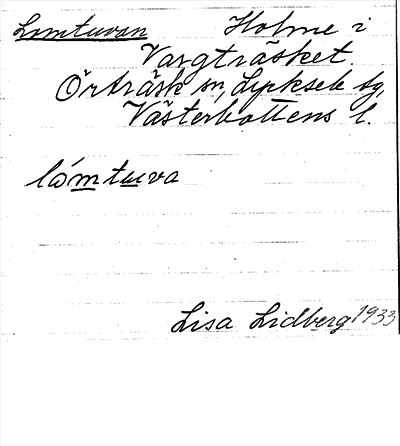 Lomtuvan Holme i
Vargträsket.
Örträsk sn, Lycksele tg,
Västerbottens l.
lómtuva
Lisa Lidberg 1933